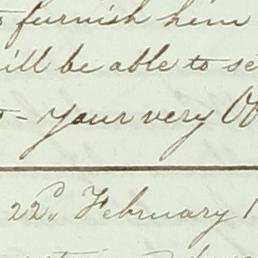 to furnish him
will be able to se
- Your very Ob
22d, February 1